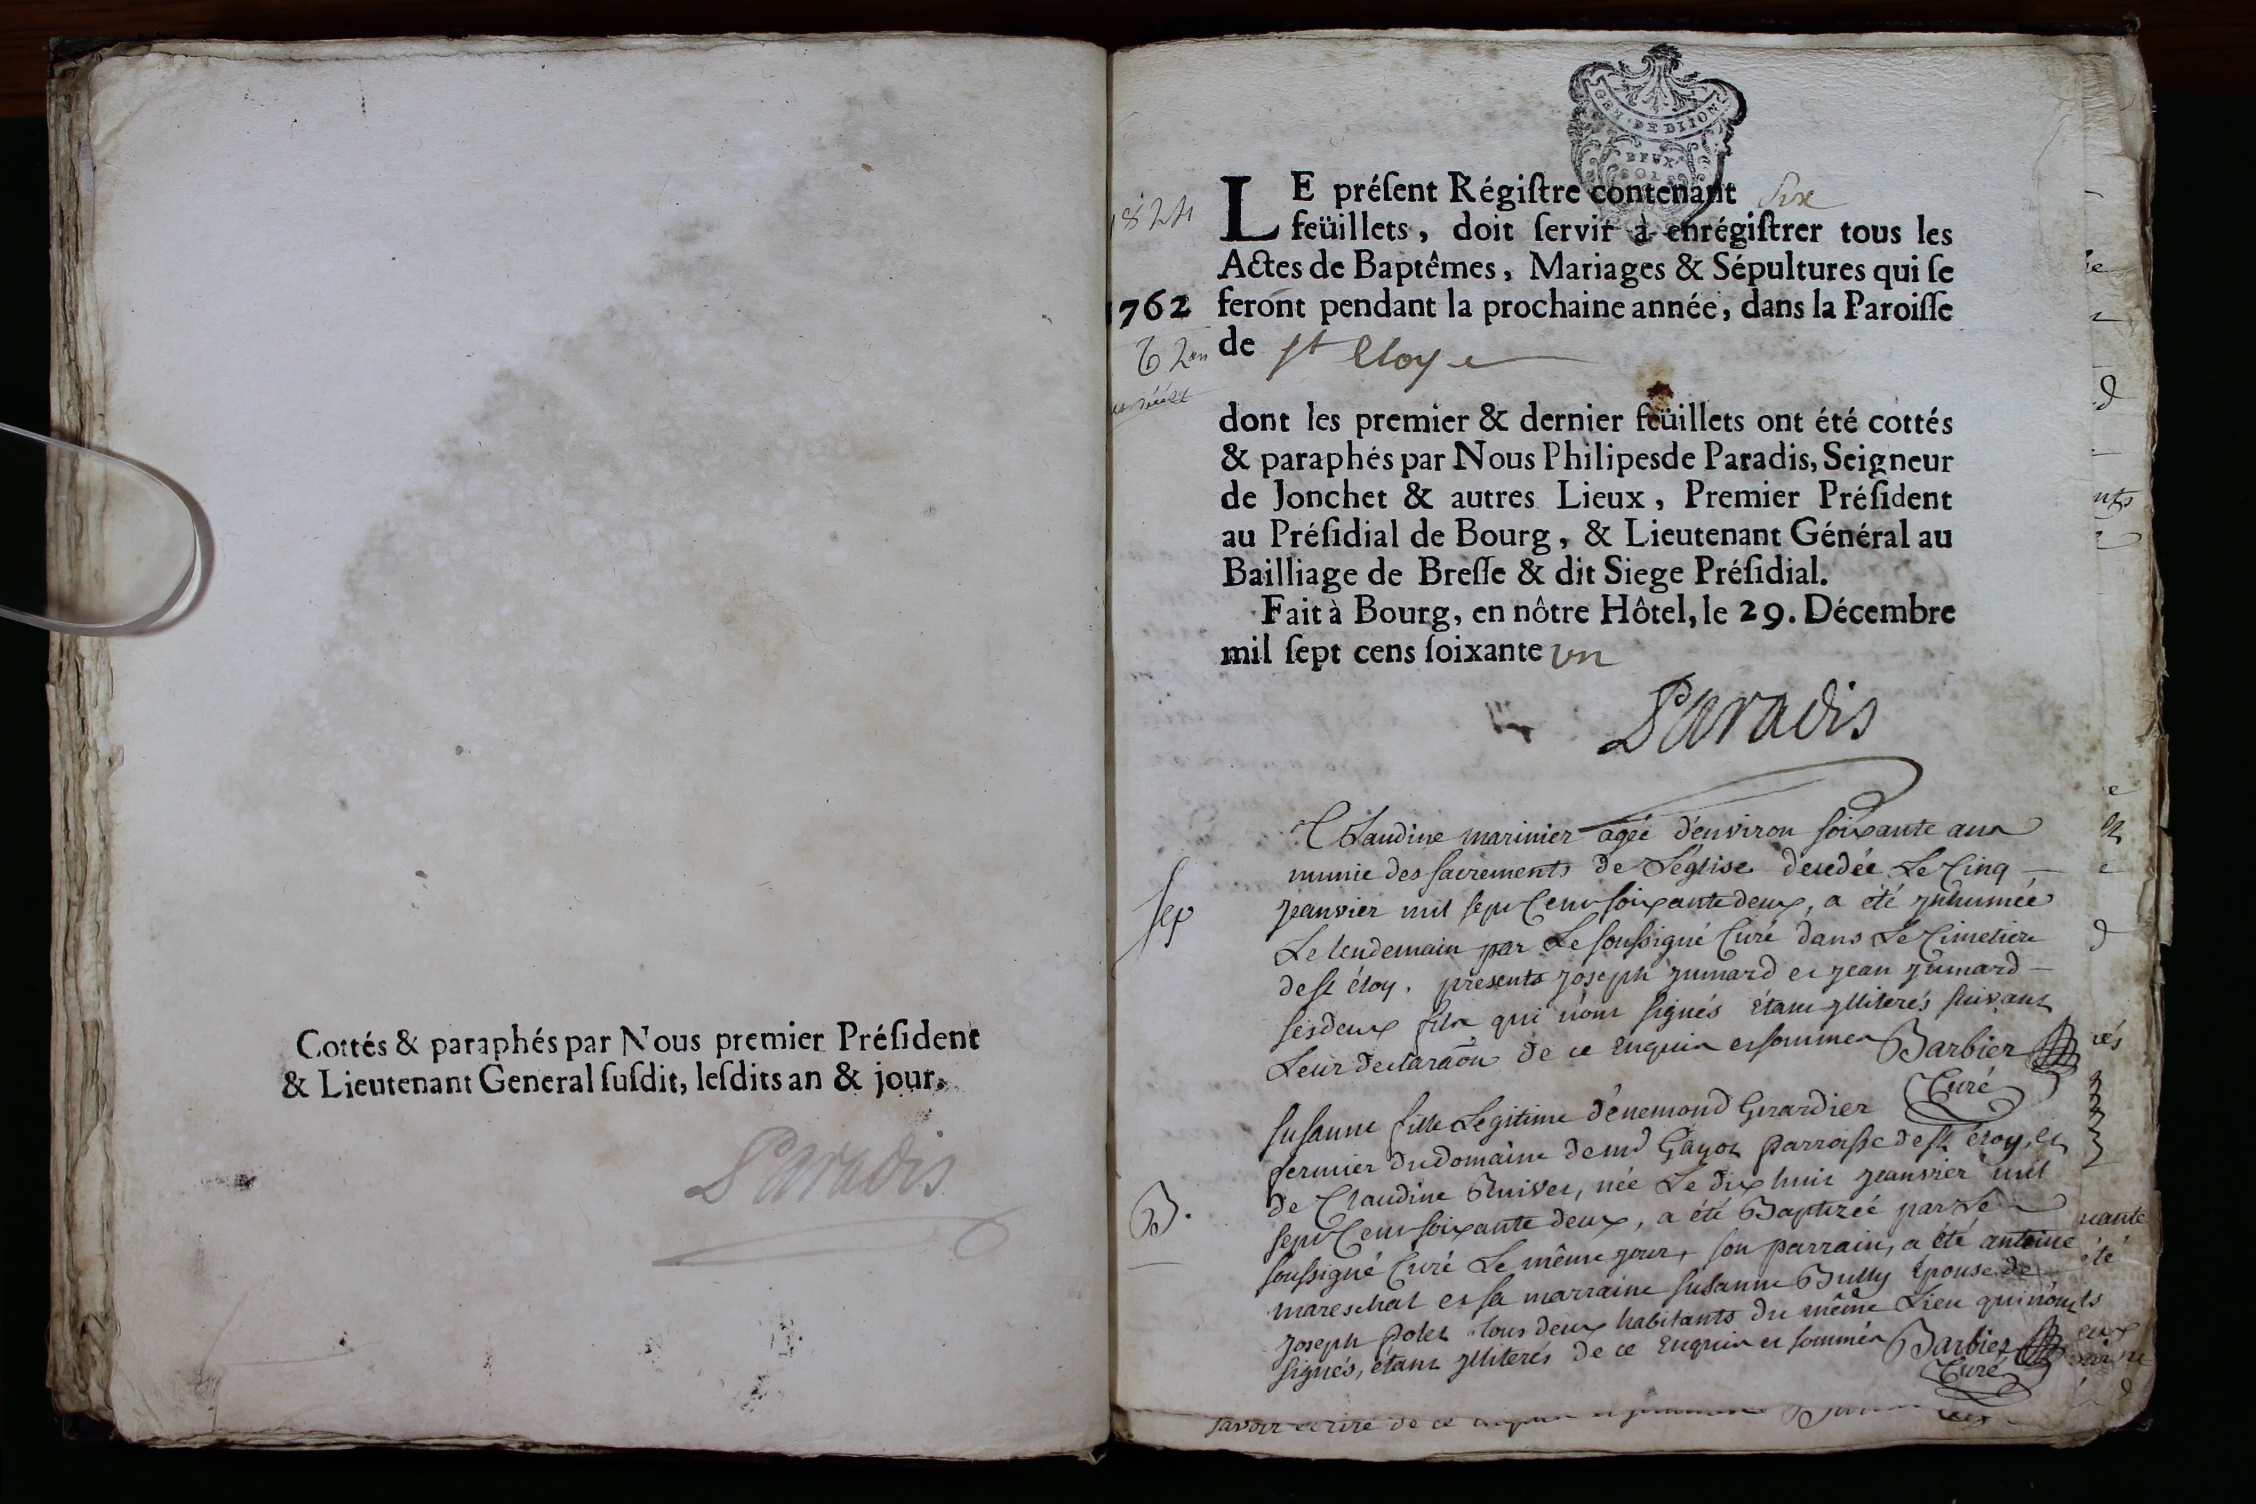 Cottés & paraphés par Nous premier Préſident
& Lieutenant General ſuſdit, leſdits an & jour.
Paradis
GEN. DE DIJON
DEUX
SOLS
LE préſent Régiſtre contenant Six
feüillets, doit ſervir à enrégiſtrer tous les
Actes de Baptêmes, Mariages & Sépultures qui ſe
1762 feront pendant la prochaine année, dans la Paroiſſe
de St Eloy
dont les premier & dernier feüillets ont été cottés
& paraphés par Nous Philipes de Paradis, Seigneur
de Jonchet & autres Lieux, Premier Préſident
au Préſidial de Bourg, & Lieutenant Général au
Bailliage de Breſſe & dit Siege Préſidial.
Fait à Bourg, en nôtre Hôtel, le 29. Décembre
mil ſept cens ſoixante un
Paradis
Claudine marinier agée d'environ soixante ans
munie des sacrements de L'église décedée Le Cinq
Sep
jeanvier mil sept Cent soixante deux, a été jnhumée
Le lendemain par Le soussigné Curé dans Le Cimetiere
de st éloy. presents joseph jumard et jean jumard
ses deux fils qui n'ont signés étant jlliterés suivant
Leur declaraõn de ce Enquis et sommés Barbier
Curé
Susanne fille Legitime d'énemond Girardier
fermier du domaine de md Gayot parroisse de st éloy, et
de Claudine Buivet, née Le dix huit jeanvier mil
B.
sept Cent soixante deux, a été Baptizée par Le
soussigné Curé Le même jour, son parrain, a été antoine
mareschal et sa marraine susanne Bully Epouse de
joseph polet tous deux habitants du même Lieu qui n'ont
signés, étant jlliterés de ce Enquis et sommés Barbier
Curé
savoir ecrire de ce